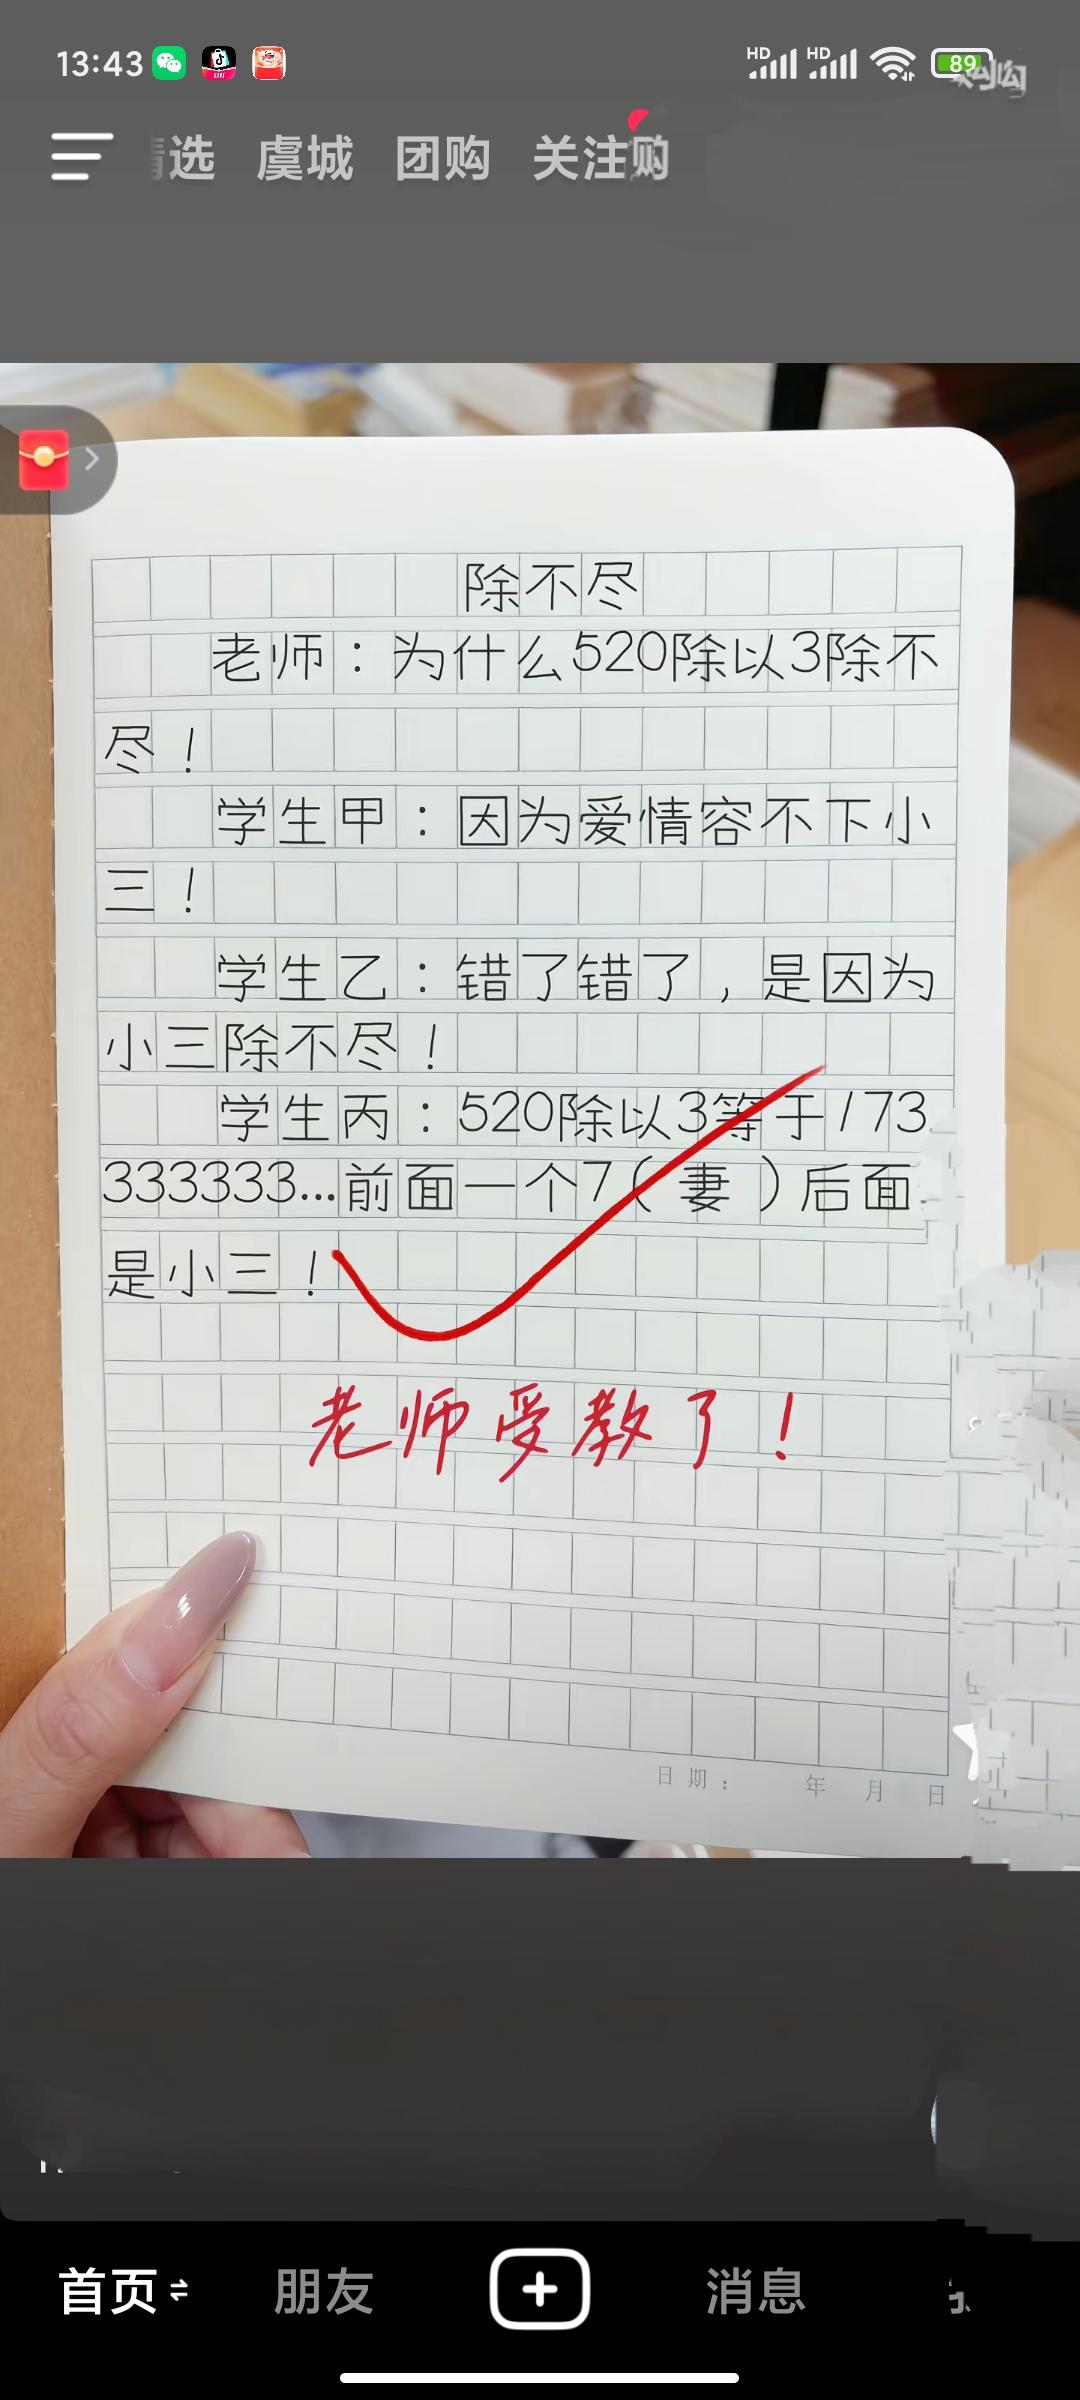 13:43
HD HD 89
选 虞城 团购 关注
除不尽
老师：为什么520除以3除不
尽！
学生甲：因为爱情容不下小
三！
学生乙：错了错了，是因为
小三除不尽！
学生丙：520除以3等于173.
333333...前面一个7（妻）后面
是小三！
老师受教了！
日期： 年 月 日
首页 朋友 消息